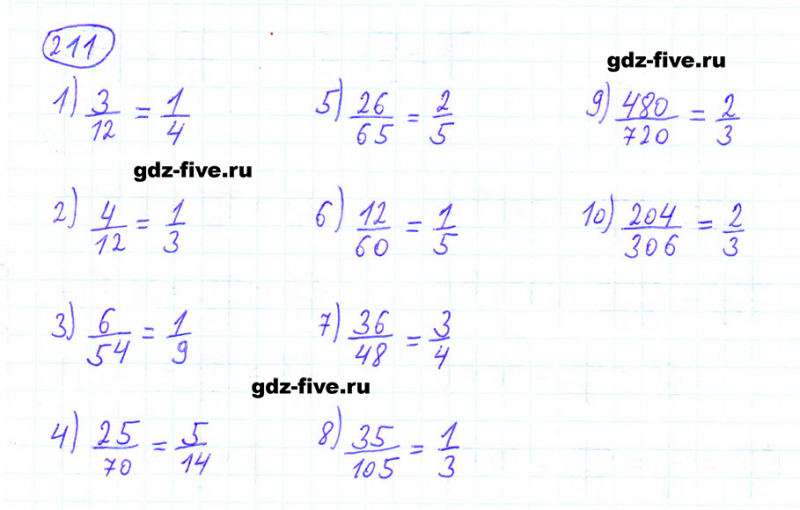 211
gdz-five.ru
1) 3/12 = 1/4
5) 26/65 = 2/5
9) 480/720 = 2/3
gdz-five.ru
2) 4/12 = 1/3
6) 12/60 = 1/5
10) 204/306 = 2/3
3) 6/54 = 1/9
7) 36/48 = 3/4
gdz-five.ru
4) 25/70 = 5/14
8) 35/105 = 1/3